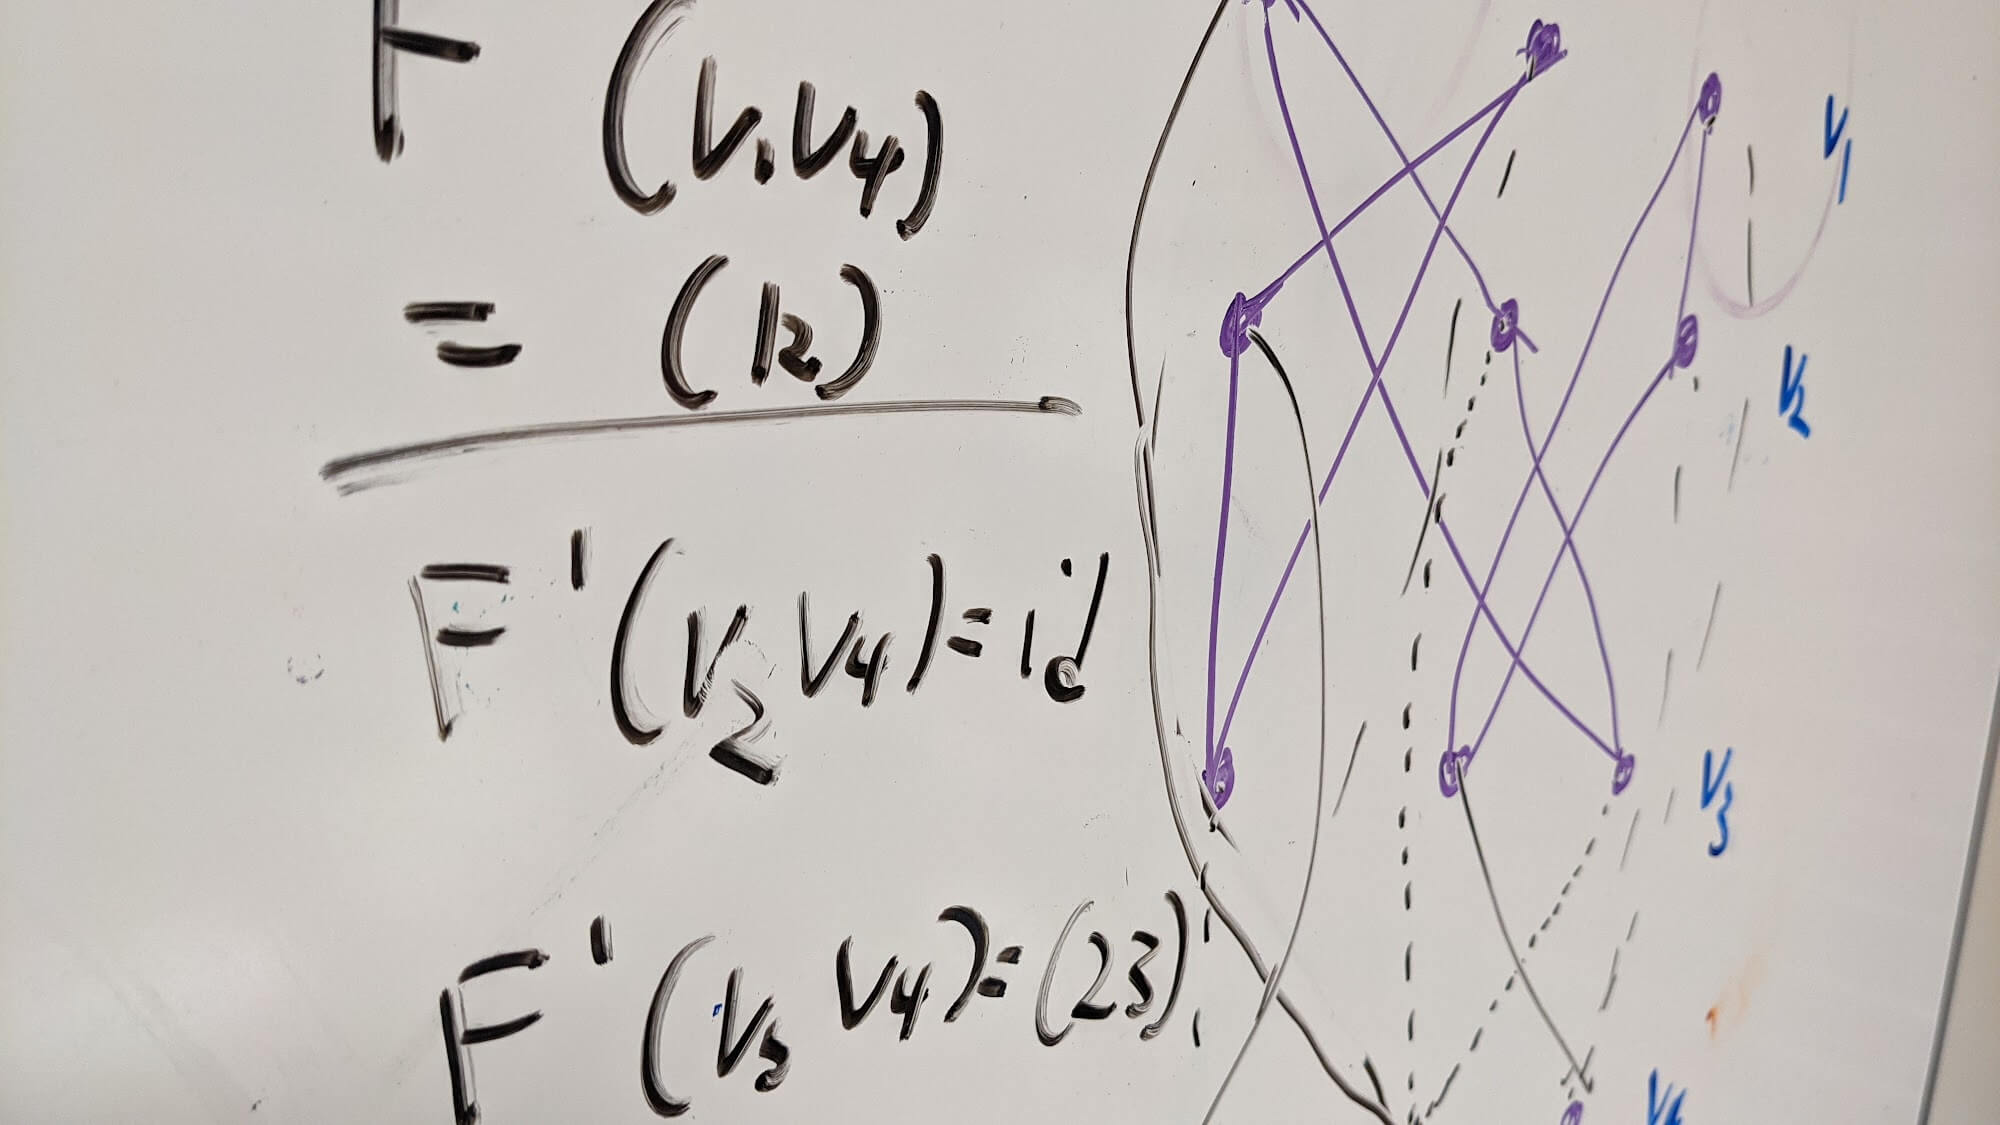 F (V₁V₄)
= (12)
F'(V₂V₄)=id
F'(V₃V₄)=(23)
V₁
V₂
V₃
V₄